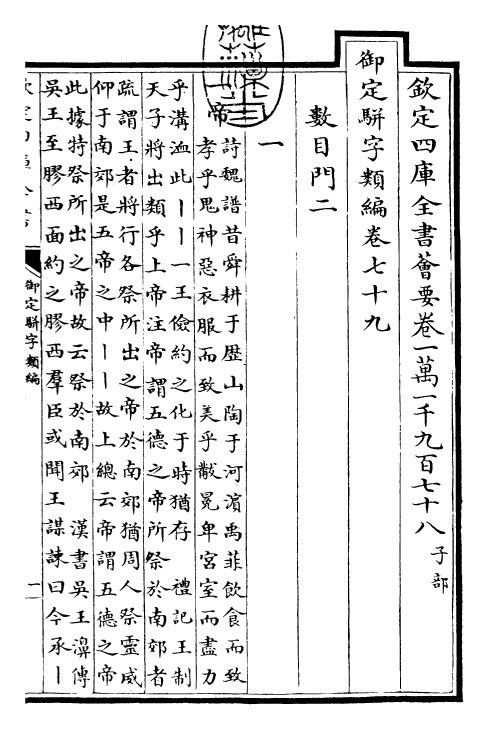 欽定四庫全書薈要卷一萬一千九百七十八 子部
御定騈字類編卷七十九
數目門二
一
帝
詩魏譜昔舜耕于歷山陶于河濱禹菲飲食而致
孝乎鬼神惡衣服而致美乎黻冕卑宮室而盡力
乎溝洫此丨丨一王儉約之化于時猶存 禮記王制
天子將出類乎上帝注帝謂五德之帝所祭於南郊者
疏謂王者將行各祭所出之帝於南郊猶周人祭靈威
仰于南郊是五帝之中丨丨故上總云帝謂五德之帝
此據特祭所出之帝故云祭於南郊 漢書吳王濞傳
吳王至膠西面約之膠西羣臣或聞王謀諫曰今承丨
御定騈字類編
一